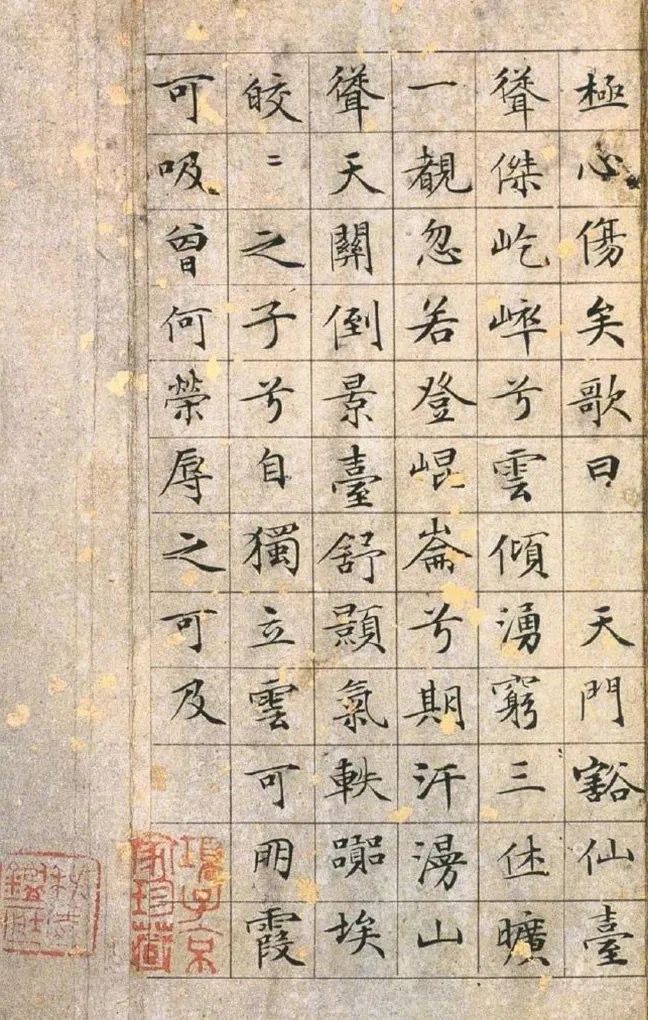 極心傷矣歌曰 天門豁仙臺
聳傑屹崪兮雲傾湧窮三休曠
一覩忽若登崐崙兮期汗漫山
聳天關倒景臺舒顥氣軼嚻埃
皎〻之子兮自獨立雲可朋霞
可吸曾何榮辱之可及
項子京家珍藏